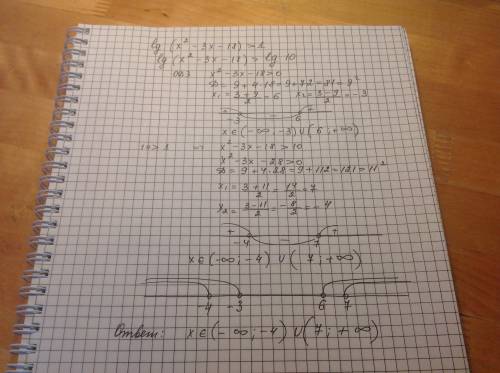 lg (x² - 3x - 18) > 1
lg (x² - 3x - 18) > lg 10
ОДЗ x² - 3x - 18 > 0
D = 9 + 4·18 = 9 + 72 = 81 = 9²
x₁ = (3+9)/2 = 6 x₂ = (3-9)/2 = -3
+ -3 - 6 +
x ∈ (-∞; -3) ∪ (6; +∞)
10 > 1 ⇒ x² - 3x - 18 > 10
x² - 3x - 28 > 0
D = 9 + 4·28 = 9 + 112 = 121 = 11²
x₁ = (3+11)/2 = 14/2 = 7
x₂ = (3-11)/2 = -8/2 = -4
+ -4 - 7 +
x ∈ (-∞; -4) ∪ (7; +∞)
-4 -3 6 7
Ответ: x ∈ (-∞; -4) ∪ (7; +∞)